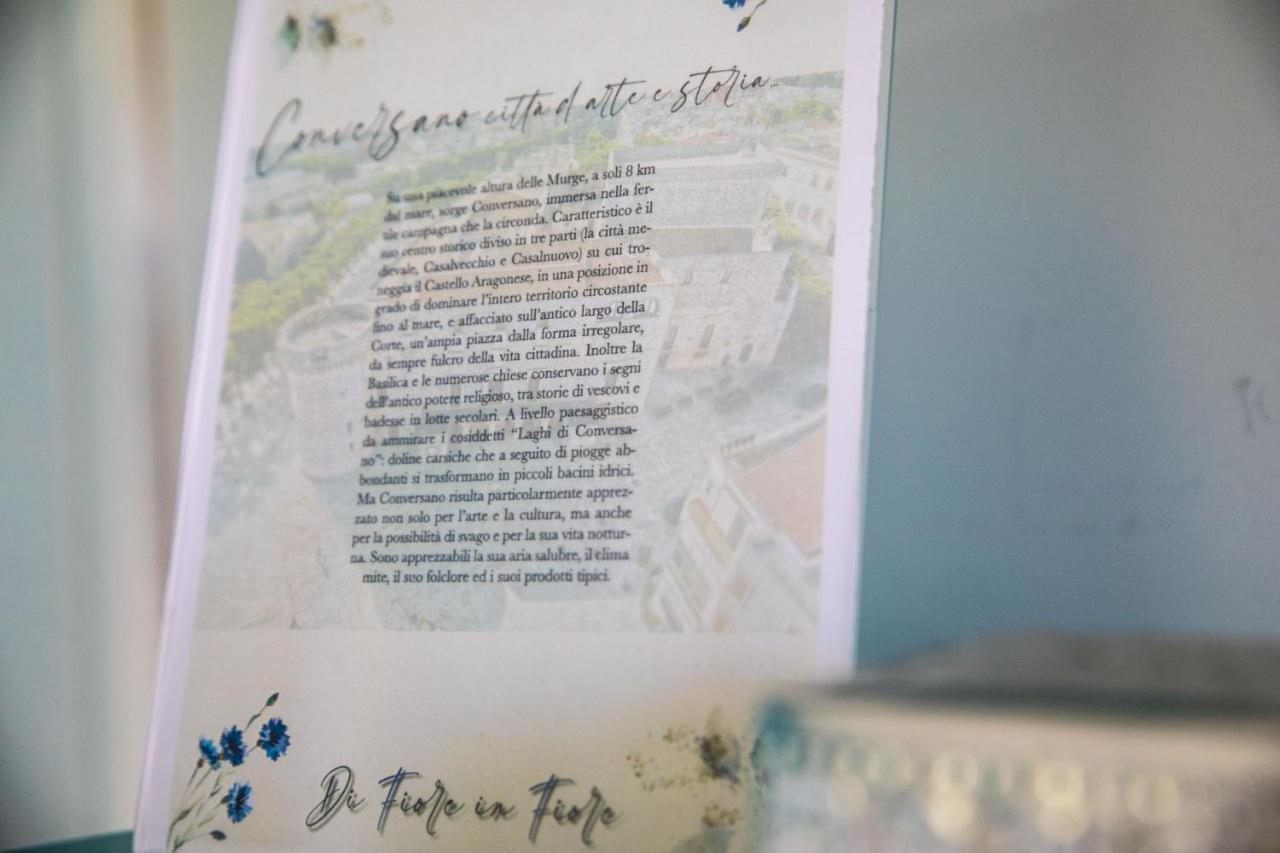 Conversano città d'arte e storia...
Su una piacevole altura delle Murge, a soli 8 km
dal mare, sorge Conversano, immersa nella fer-
tile campagna che la circonda. Caratteristico è il
suo centro storico diviso in tre parti (la città me-
dievale, Casalvecchio e Casalnuovo) su cui tro-
neggia il Castello Aragonese, in una posizione in
grado di dominare l'intero territorio circostante
fino al mare, e affacciato sull'antico largo della
Corte, un'ampia piazza dalla forma irregolare,
da sempre fulcro della vita cittadina. Inoltre la
Basilica e le numerose chiese conservano i segni
dell'antico potere religioso, tra storie di vescovi e
badesse in lotte secolari. A livello paesaggistico
da ammirare i cosiddetti "Laghi di Conversa-
no": doline carsiche che a seguito di piogge ab-
bondanti si trasformano in piccoli bacini idrici.
Ma Conversano risulta particolarmente apprez-
zato non solo per l'arte e la cultura, ma anche
per la possibilità di svago e per la sua vita nottur-
na. Sono apprezzabili la sua aria salubre, il clima
mite, il suo folclore ed i suoi prodotti tipici.
Di Fiore in Fiore